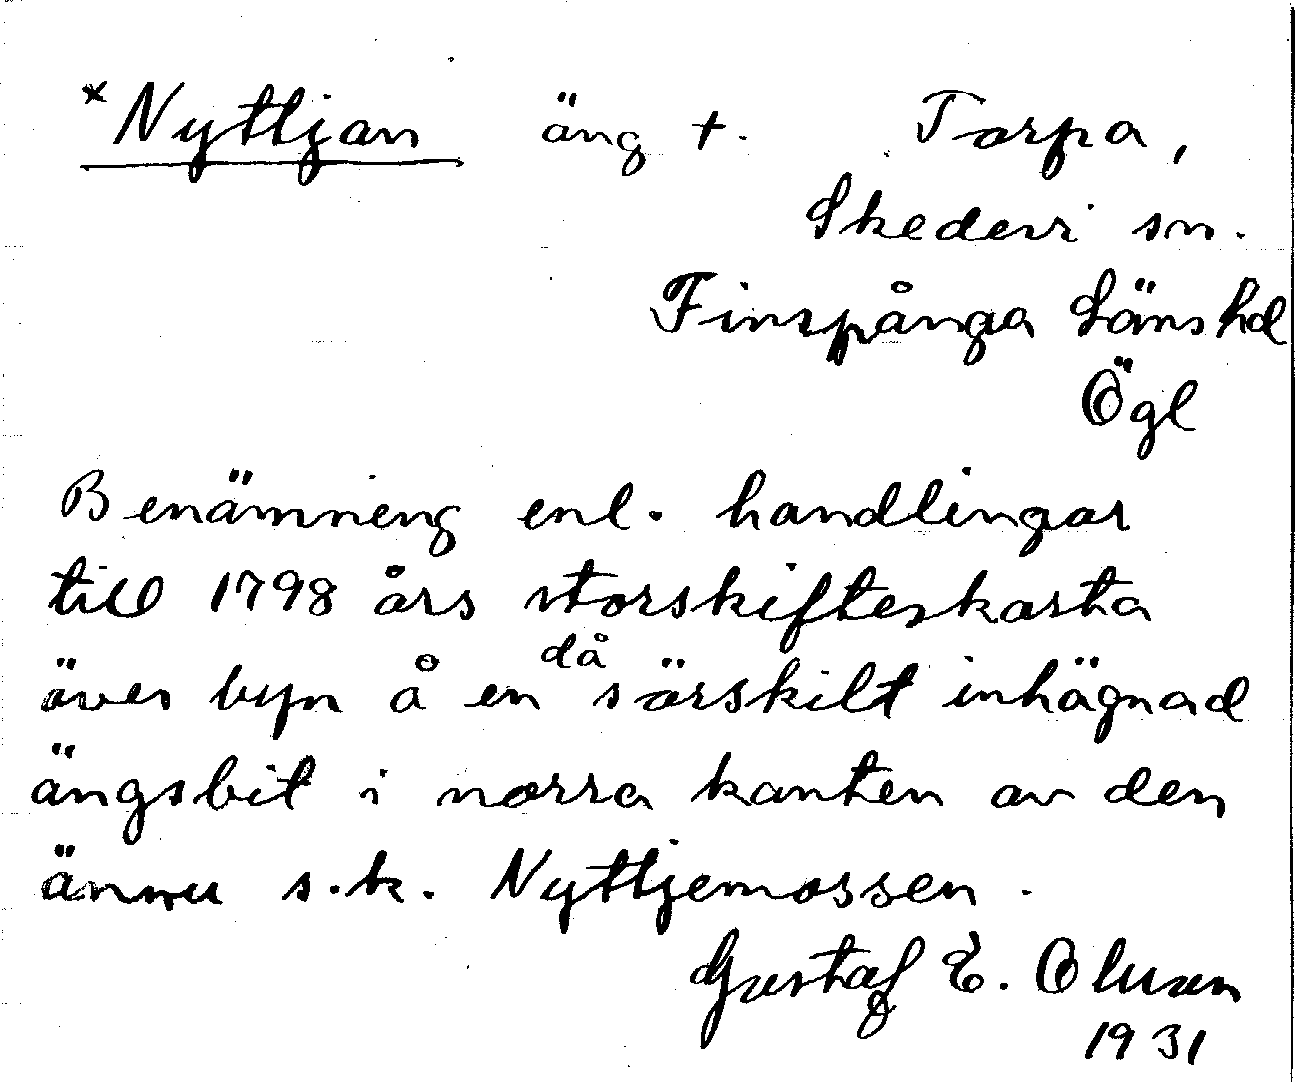 *Nyttjan äng †. Torpa,
Skedevi sn.
Finspånga Läns hd
Ögl
Benämning enl. handlingar
till 1798 års storskifteskarta
över byn å en då särskilt inhägnad
ängsbit i norra kanten av den
ännu s.k. Nyttjemossen.
Gustaf E. Olsson
1931